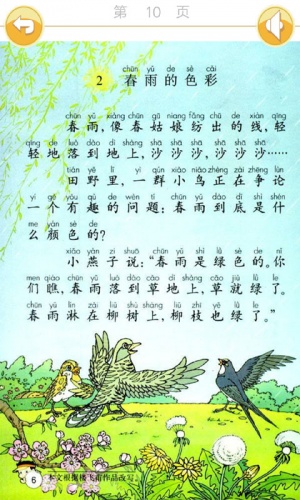 第 10 页
chūn yǔ de sè cǎi
2 春雨的色彩
chūn yǔ xiàng chūn gū niang fǎng chū de xiàn qīng
春雨，像春姑娘纺出的线，轻
qīng de luò dào dì shàng shā shā shā shā shā shā
轻地落到地上，沙沙沙，沙沙沙……
tián yě lǐ yì qún xiǎo niǎo zhèng zài zhēng lùn
田野里，一群小鸟正在争论
yí gè yǒu qù de wèn tí chūn yǔ dào dǐ shì shén
一个有趣的问题：春雨到底是什
me yán sè de
么颜色的？
xiǎo yàn zi shuō chūn yǔ shì lǜ sè de nǐ
小燕子说：“春雨是绿色的。你
men qiáo chūn yǔ luò dào cǎo dì shàng cǎo jiù lǜ le
们瞧，春雨落到草地上，草就绿了。
chūn yǔ lín zài liǔ shù shàng liǔ zhī yě lǜ le
春雨淋在柳树上，柳枝也绿了。”
6 本文根据楼飞甫作品改写。